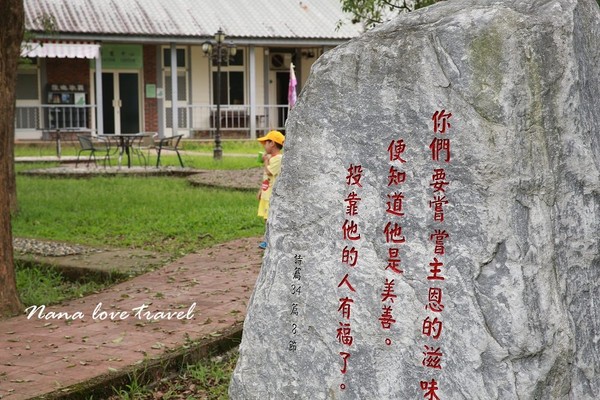 你們要嘗嘗主恩的滋味
便知道他是美善。
投靠他的人有福了。
詩篇 34 篇 8 節
Nana love travel